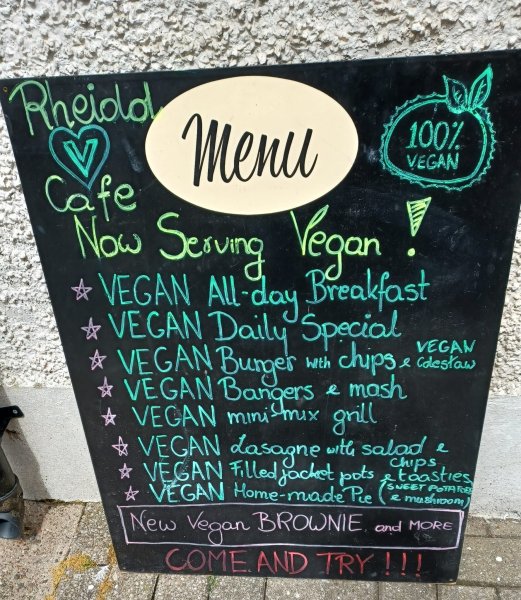 Rheidol
Menu
100%
VEGAN
V
Cafe
Now Serving Vegan !
VEGAN All-day Breakfast
VEGAN Daily Special
VEGAN Burger with chips & VEGAN Coleslaw
VEGAN Bangers & mash
VEGAN mini mix grill
VEGAN Lasagne with salad & chips
VEGAN Filled jacket pots & toasties
VEGAN Home-made Pie (SWEET POTATOES & mushroom)
New Vegan BROWNIE and MORE
COME AND TRY !!!